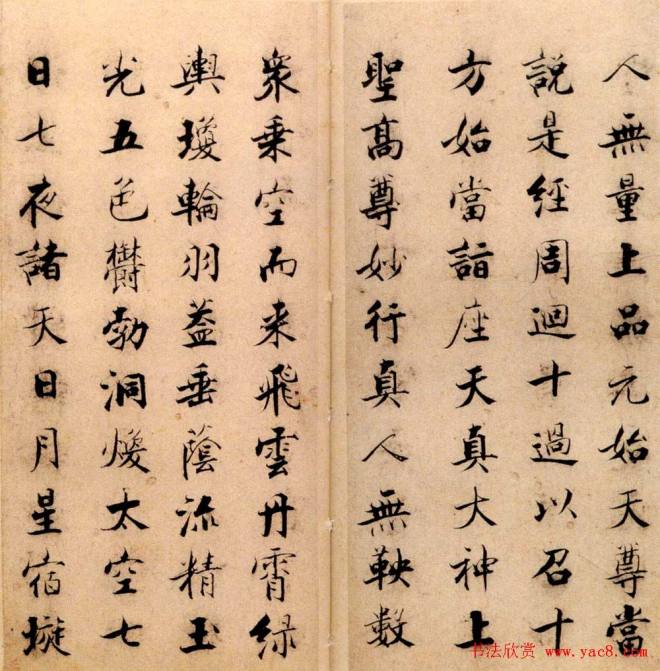 人無量上品元始天尊當
說是經周迴十過以召十
方始當詣座天真大神上
聖高尊妙行真人無鞅數
衆乗空而来飛雲丹霄緑
輿瓊輪羽蓋垂蔭流精玉
光五色欝勃洞煥太空七
日七夜諸天日月星宿璇
书法欣赏 www.yac8.com